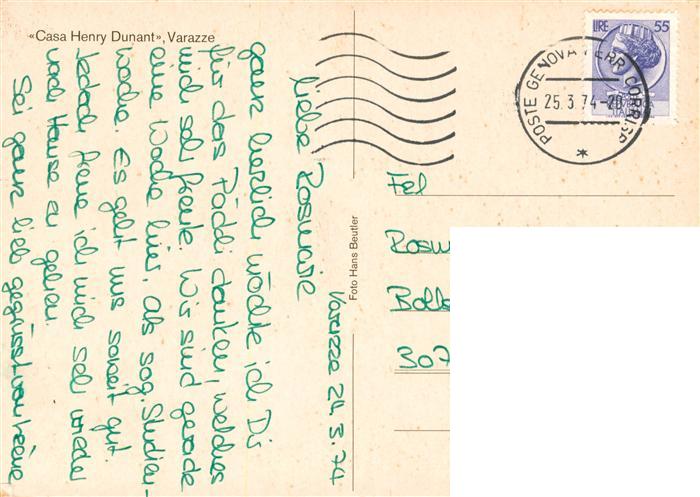 «Casa Henry Dunant», Varazze
LIRE 55
POSTE GENOVA FERR. CORRISP.
25.3.74-20
Foto Hans Beutler
Varazze 24.3.74
Liebe Rosmarie
ganz herzlich möchte ich Dir
für das Päckli danken, welches
mich sehr freute. Wir sind gerade
eine Woche hier. Als sog. Studien-
woche. Es geht uns soweit gut.
Jedoch freue ich mich sehr wieder
nach Hause zu gehen.
Sei ganz lieb gegrüsst von
Frl
Rosm
Boll
307